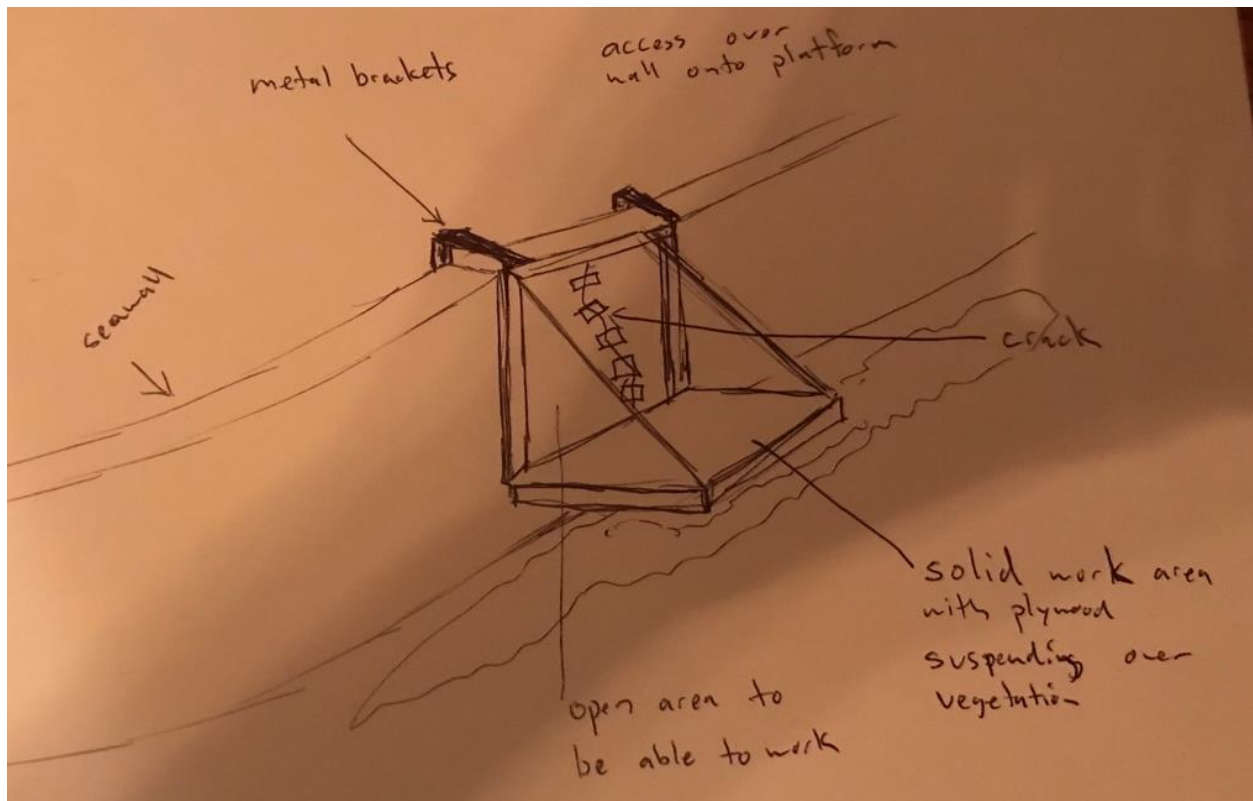 metal brackets
access over
wall onto platform
seawall
crack
solid work area
with plywood
suspending over
vegetation
open area to
be able to work